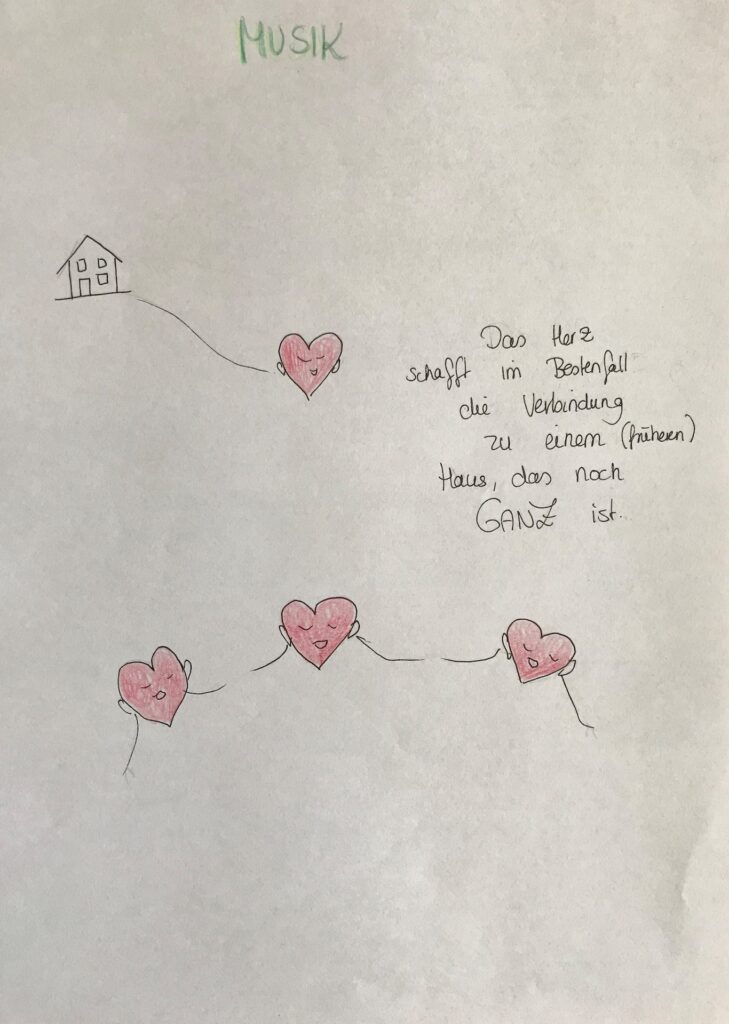 MUSIK
Das Herz
schafft im Bestenfall
die Verbindung
zu einem (früheren)
Haus, das noch
GANZ ist.